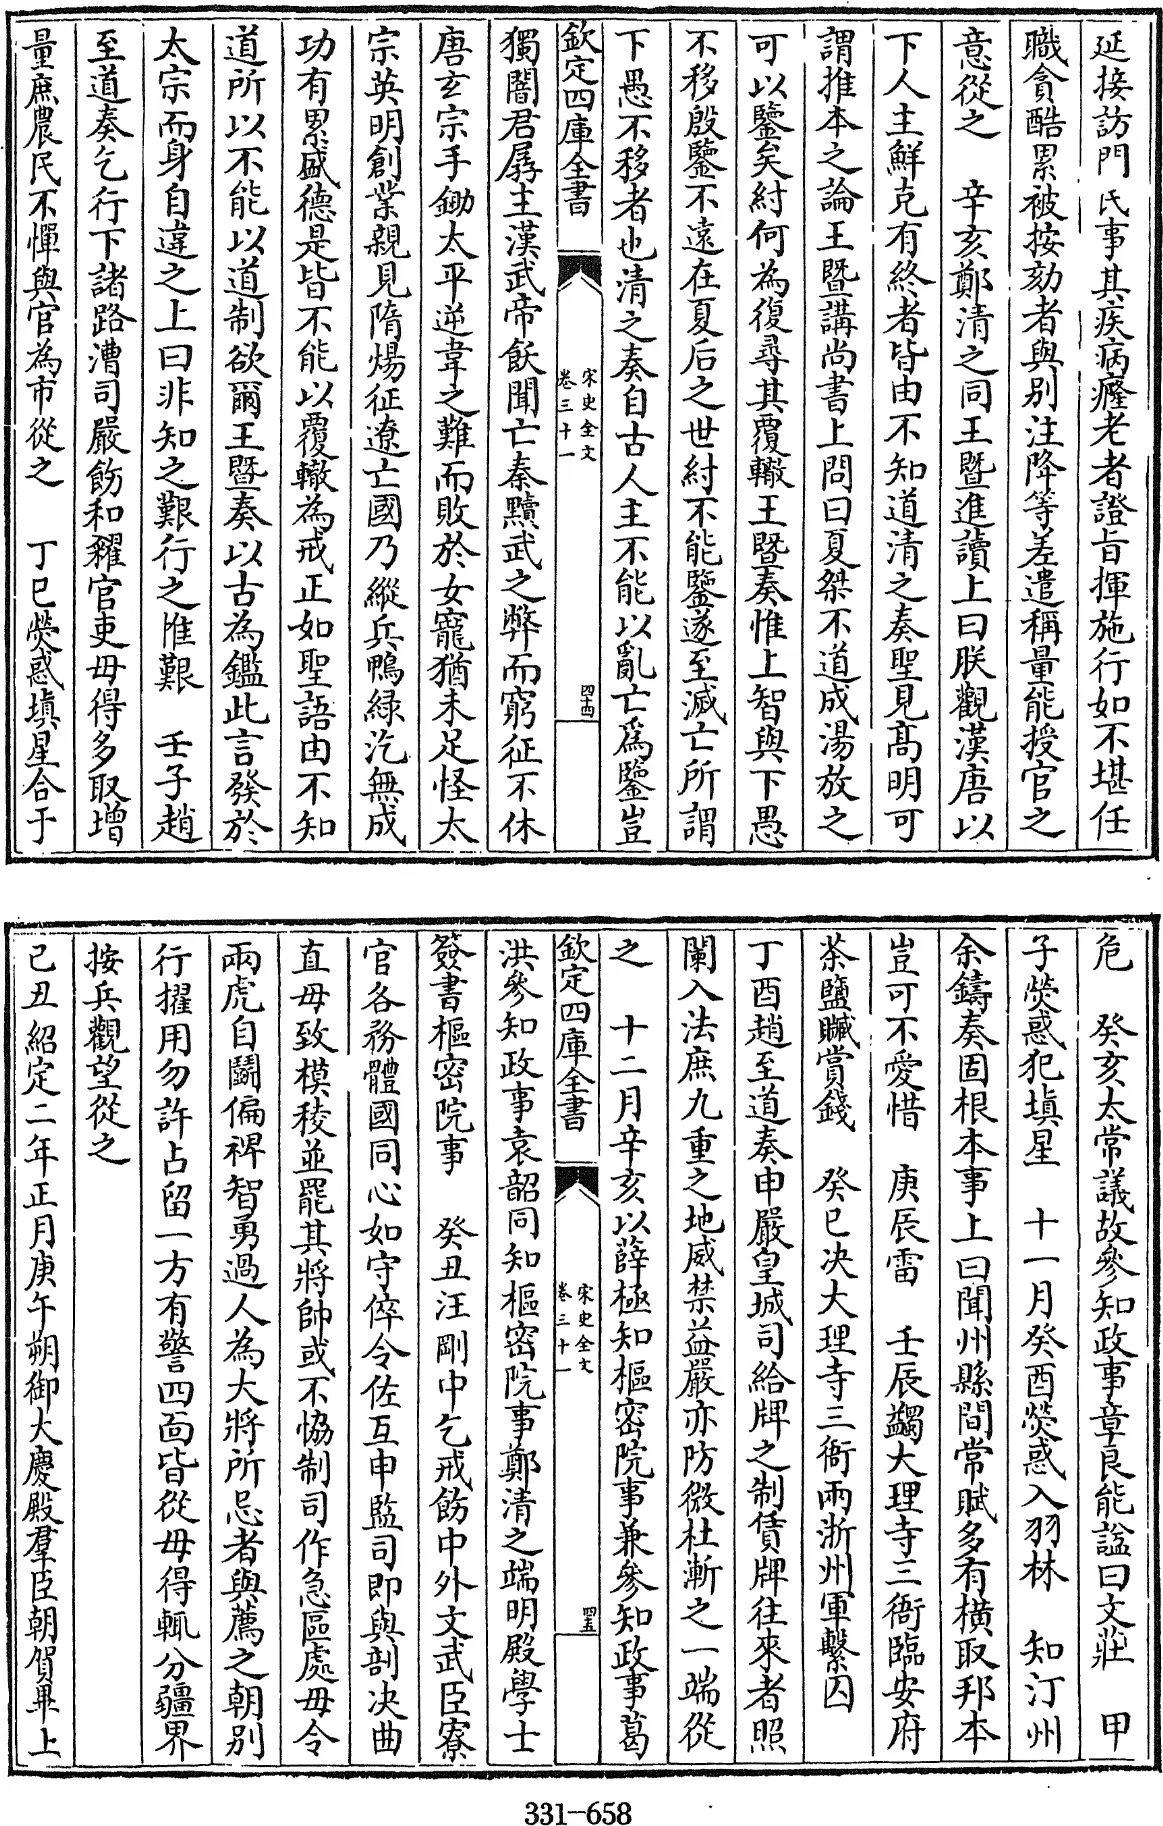 延接訪門民事其疾病癃老者證旨揮施行如不堪任
職貪酷累被按劾者與別注降等差遣稱量能授官之
意從之　辛亥鄭清之同王暨進讀上曰朕觀漢唐以
下人主鮮克有終者皆由不知道清之奏聖見高明可
謂推本之論王暨講尚書上問曰夏桀不道成湯放之
可以鑒矣紂何為復尋其覆轍王暨奏惟上智與下愚
不移殷鑒不遠在夏后之世紂不能鑒遂至滅亡所謂
下愚不移者也清之奏自古人主不能以亂亡爲鑒豈
欽定四庫全書　宋史全文卷三十一　四十四
獨闇君孱主漢武帝飫聞亡秦黷武之弊而窮征不休
唐玄宗手鋤太平逆韋之難而敗於女寵猶未足怪太
宗英明創業親見隋煬征遼亡國乃縱兵鴨綠汔無成
功有累盛德是皆不能以覆轍為戒正如聖語由不知
道所以不能以道制欲爾王暨奏以古為鑑此言發於
太宗而身自違之上曰非知之艱行之惟艱　壬子趙
至道奏乞行下諸路漕司嚴飭和糴官吏毋得多取增
量庶農民不憚與官為市從之　丁巳熒惑填星合于
危　癸亥太常議故參知政事章良能諡曰文莊　甲
子熒惑犯填星　十一月癸酉熒惑入羽林　知汀州
余鑄奏固根本事上曰聞州縣間常賦多有橫取邦本
豈可不愛惜　庚辰雷　壬辰蠲大理寺三衙臨安府
茶鹽贓賞錢　癸巳決大理寺三衙兩浙州軍繫囚
丁酉趙至道奏申嚴皇城司給牌之制賃牌往來者照
闌入法庶九重之地威禁益嚴亦防微杜漸之一端從
之　十二月辛亥以薛極知樞密院事兼參知政事葛
欽定四庫全書　宋史全文卷三十一　四十五
洪參知政事袁韶同知樞密院事鄭清之端明殿學士
簽書樞密院事　癸丑汪剛中乞戒飭中外文武臣寮
官各務體國同心如守倅令佐互申監司即與剖決曲
直毋致模稜並罷其將帥或不協制司作急區處毋令
兩虎自鬭偏裨智勇過人為大將所忌者與薦之朝別
行擢用勿許占留一方有警四面皆從毋得輒分疆界
按兵觀望從之
己丑紹定二年正月庚午朔御大慶殿羣臣朝賀畢上
331-658